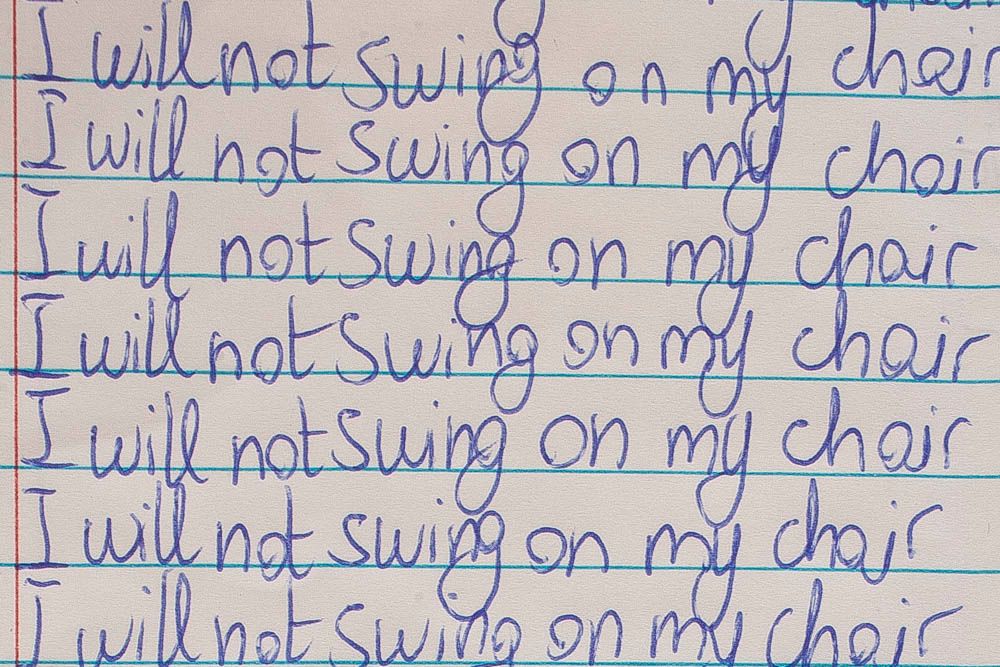 I will not swing on my chair
I will not swing on my chair
I will not swing on my chair
I will not swing on my chair
I will not swing on my chair
I will not swing on my chair
I will not swing on my chair